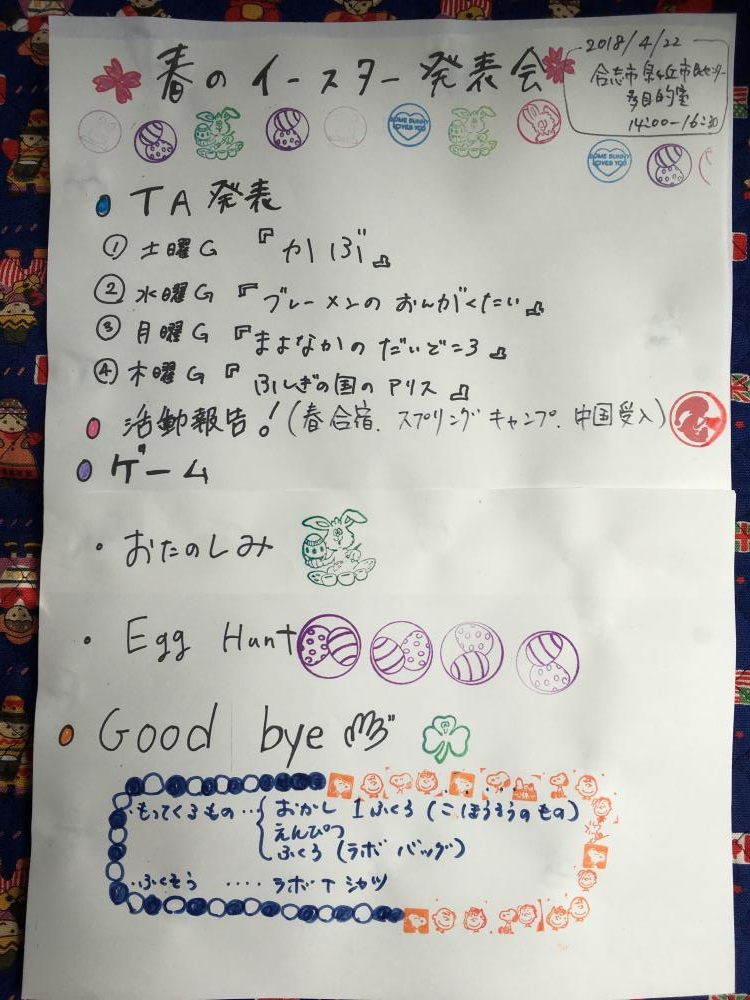 春のイースター発表会
2018/4/22
合志市泉ヶ丘市民センター
多目的室
14:00-16:30
SOME BUNNY LOVES YOU
SOME BUNNY LOVES YOU
TA 発表
① 土曜G 『かぶ』
② 水曜G 『ブレーメンの おんがくたい』
③ 月曜G 『まよなかの だいどころ』
④ 木曜G 『ふしぎの国の アリス』
活動報告!(春合宿、スプリングキャンプ、中国受入)
ゲーム
・おたのしみ
・Egg Hunt
Good bye
・もってくるもの‥ おかし 1ふくろ (こぼうそうのもの)
えんぴつ
ふくろ (ラボ バッグ)
・ふくそう ‥‥ ラボTシャツ